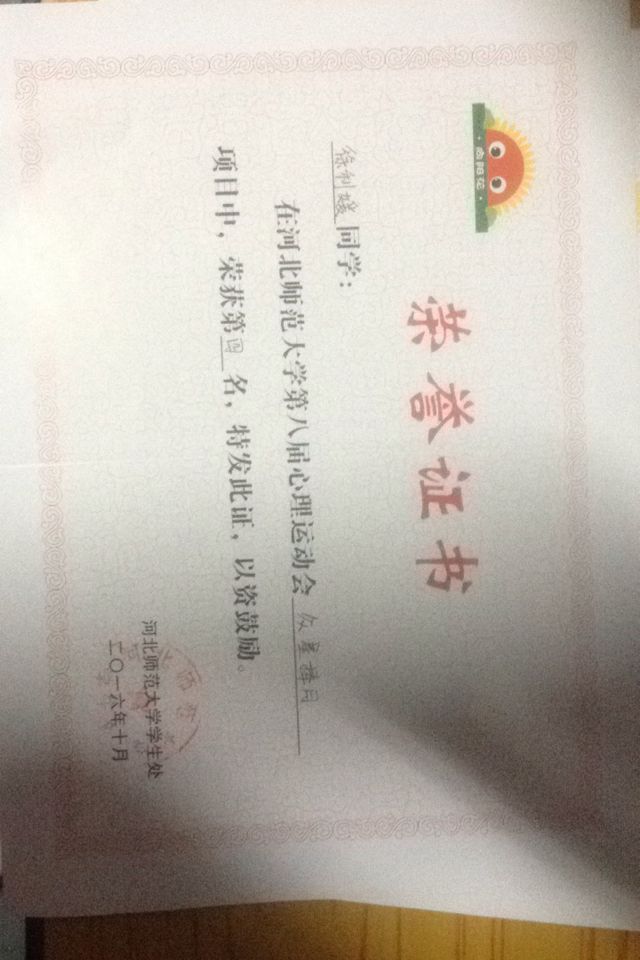 ·向阳花·
荣誉证书
徐利媛同学：
在河北师范大学第八届心理运动会众星捧月
项目中，荣获第四名，特发此证，以资鼓励。
河北师范大学学生处
二〇一六年十月